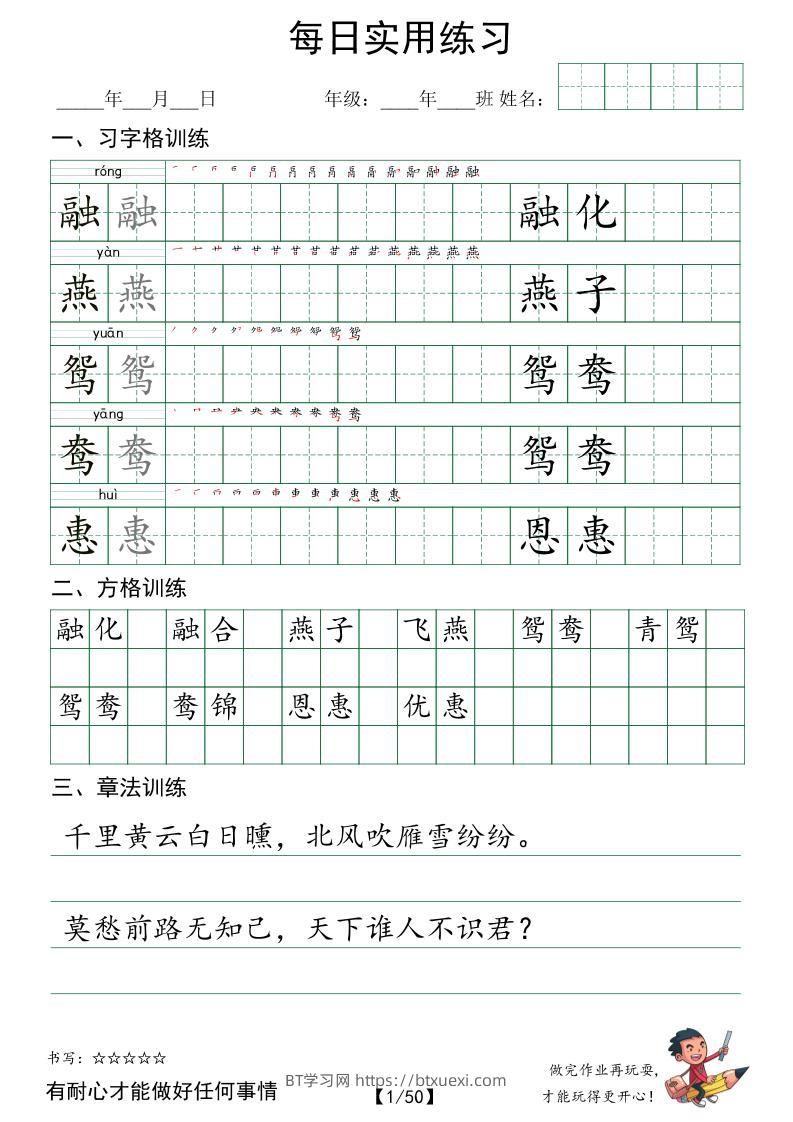 每日实用练习
_____年___月___日 年级：____年____班 姓名：
一、习字格训练
róng
融 融 融 化
yàn
燕 燕 燕 子
yuān
鸳 鸳 鸳 鸯
yāng
鸯 鸯 鸳 鸯
huì
惠 惠 恩 惠
二、方格训练
融 化 融 合 燕 子 飞 燕 鸳 鸯 青 鸳
鸳 鸯 鸯 锦 恩 惠 优 惠
三、章法训练
千里黄云白日曛，北风吹雁雪纷纷。
莫愁前路无知己，天下谁人不识君？
书写：☆☆☆☆☆
有耐心才能做好任何事情
BT学习网 https://btxuexi.com
【1/50】
做完作业再玩耍，
才能玩得更开心！